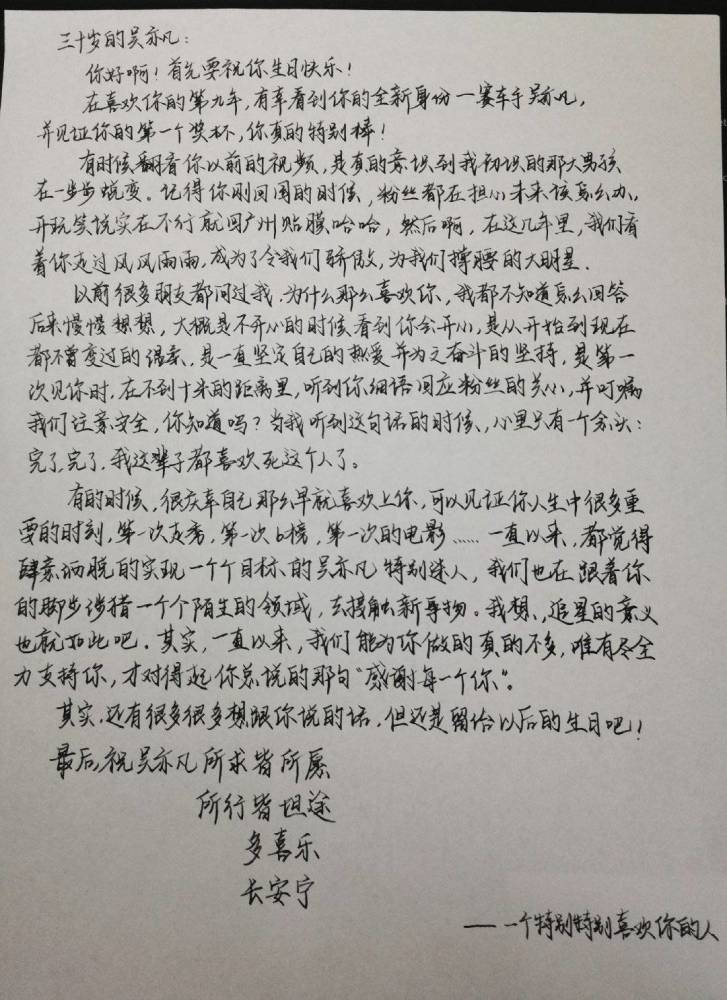 三十岁的吴亦凡：
你好啊！首先要祝你生日快乐！
在喜欢你的第九年，有幸看到你的全新身份一赛车手吴亦凡，
并见证你的第一个奖杯，你真的特别棒！
有时候翻看你以前的视频，是真的意识到我初识的那大男孩
在一步步蜕变。记得你刚回国的时候，粉丝都在担心未来该怎么办，
开玩笑说实在不行就回广州贴膜哈哈，然后啊，在这几年里，我们看
着你走过风风雨雨，成为了令我们骄傲，为我们撑腰的大明星．
以前很多朋友都问过我，为什么那么喜欢你，我都不知道怎么回答
后来慢慢想想，大概是不开心的时候看到你会开心，是从开始到现在
都不曾变过的温柔，是一直坚定自己的热爱并为之奋斗的坚持，是第一
次见你时，在不到十米的距离里，听到你细语回应粉丝的关心，并叮嘱
我们注意安全，你知道吗？当我听到这句话的时候，心里只有一个念头：
完了，完了，我这辈子都喜欢死这个人了。
有的时候，很庆幸自己那么早就喜欢上你，可以见证你人生中很多重
要的时刻，第一次走秀，第一次b榜，第一次的电影……一直以来，都觉得
肆意洒脱的实现一个个目标的吴亦凡特别迷人，我们也在跟着你
的脚步涉猎一个个陌生的领域，去接触新事物。我想，追星的意义
也就如此吧．其实，一直以来，我们能为你做的真的不多，唯有尽全
力支持你，才对得起你总说的那句“感谢每一个你”。
其实，还有很多很多想跟你说的话，但还是留给以后的生日吧！
最后，祝吴亦凡所求皆所愿
所行皆坦途
多喜乐
长安宁
——一个特别特别喜欢你的人